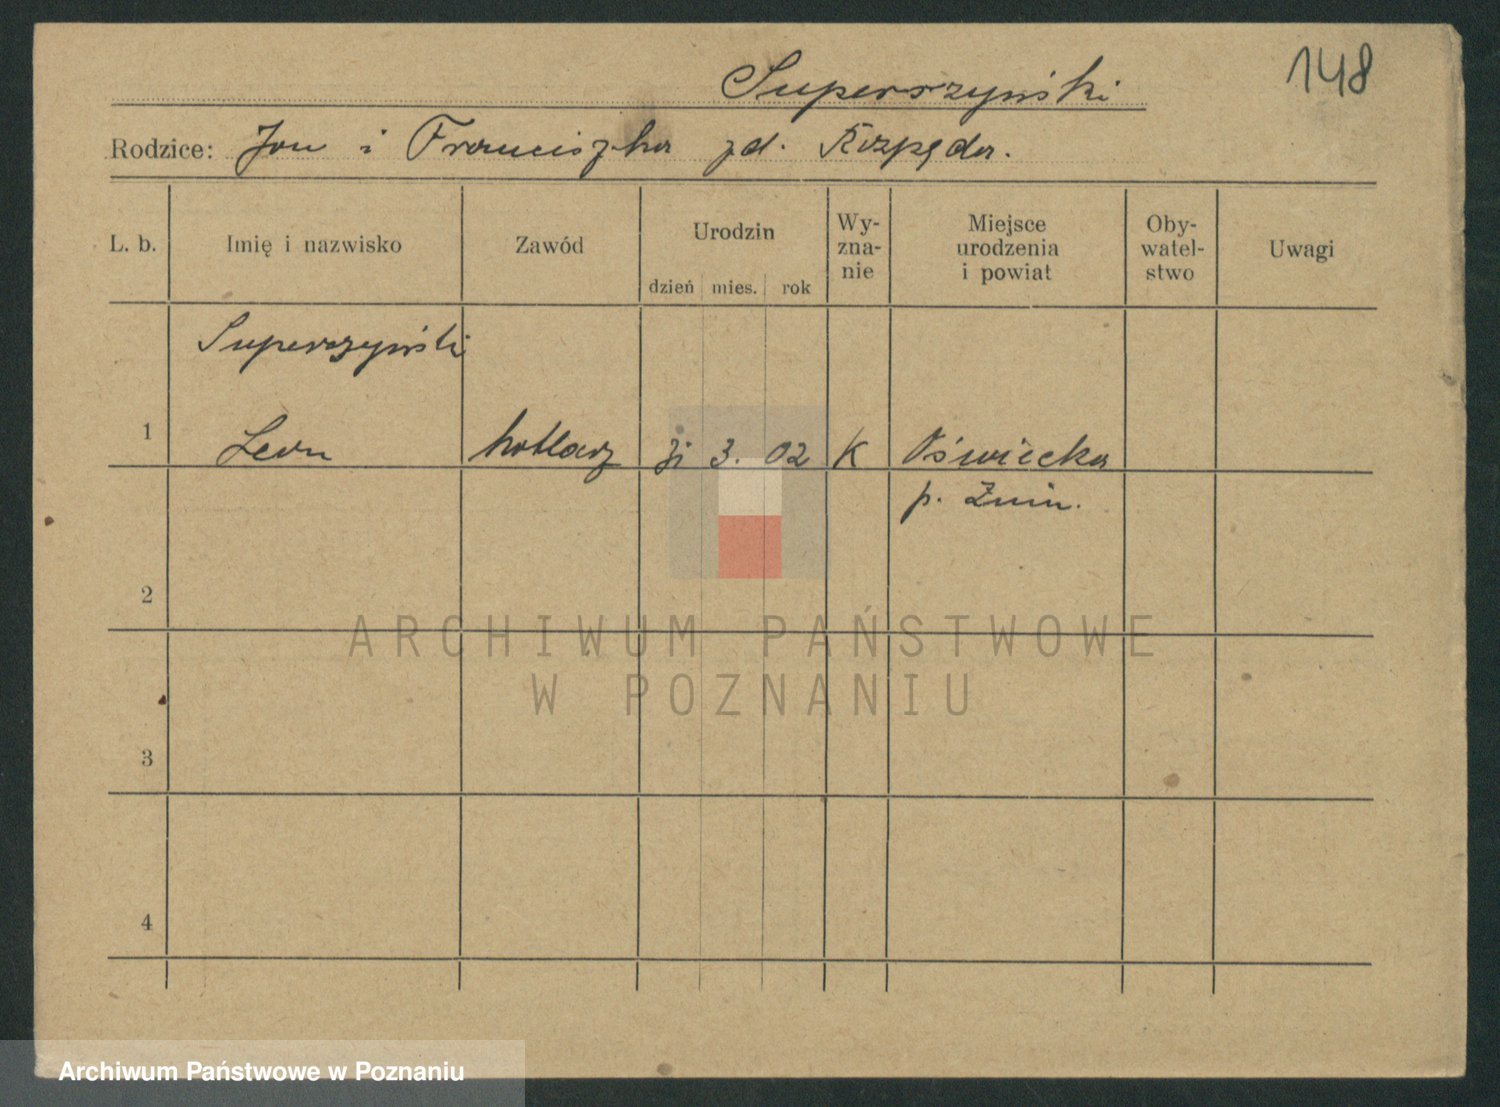 148
Superszyński
Rodzice: Jan i Franciszka zd. Rozpęda.
L. b.
Imię i nazwisko
Zawód
Urodzin
dzień mies. rok
Wy-
zna-
nie
Miejsce
urodzenia
i powiat
Oby-
watel-
stwo
Uwagi
Superszyński
1 Leon kotlarz 3. 02 K Oświecka
p. Żnin.
2
3
4
ARCHIWUM PAŃSTWOWE
W POZNANIU
Archiwum Państwowe w Poznaniu